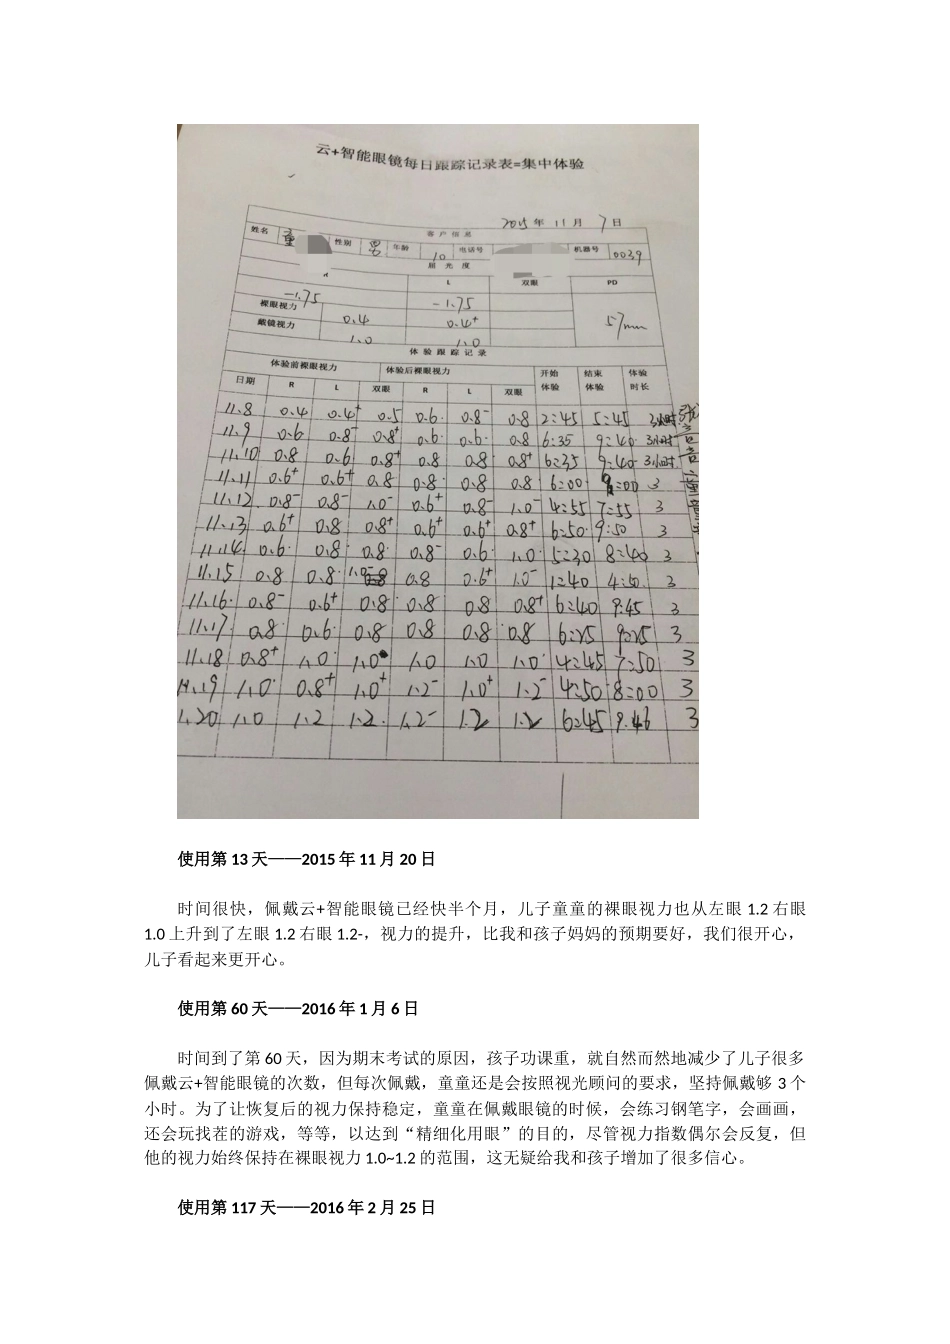 云+智能眼镜每日跟踪记录表=集中体验
2015 年 11 月 7 日
客户信息
姓名 童 性别 男 年龄 10 电话号 机器号 0039
屈光度
L 双眼 PD
-1.75 -1.75 57mm
裸眼视力 0.4 0.4+
戴镜视力 1.0 1.0
体验跟踪记录
体验前裸眼视力 体验后裸眼视力 开始体验 结束体验 体验时长
日期 R L 双眼 R L 双眼
11.8 0.4 0.4+ 0.5 0.6 0.8- 0.8 2:45 5:45 3小时
11.9 0.6 0.8- 0.8+ 0.6 0.6 0.8 6:35 9:40 3小时
11.10 0.8 0.6 0.8+ 0.8 0.8 0.8+ 6:35 9:40 3小时
11.11 0.6+ 0.6+ 0.8 0.8 0.8 0.8 6:00 9:00 3
11.12 0.8- 0.8- 1.0- 0.6+ 0.8- 1.0- 4:55 7:55 3
11.13 0.6+ 0.8 0.8+ 0.6+ 0.6+ 0.8+ 6:50 9:50 3
11.14 0.6 0.8 0.8 0.8- 0.6 1.0 5:30 8:40 3
11.15 0.8 0.8 1.0- 0.8 0.6+ 1.0- 1:40 4:40 3
11.16 0.8- 0.6+ 0.8 0.8 0.8 0.8+ 6:40 9:45 3
11.17 0.8 0.6 0.8 0.8 0.8 0.8 6:25 9:25 3
11.18 0.8+ 1.0 1.0 1.0 1.0 1.0 4:45 7:50 3
11.19 1.0 0.8+ 1.0+ 1.2- 1.0+ 1.2- 4:50 8:00 3
1.20 1.0 1.2 1.2 1.2- 1.2 1.2 6:45 9:46 3
使用第 13 天——2015 年 11 月 20 日
时间很快，佩戴云+智能眼镜已经快半个月，儿子童童的裸眼视力也从左眼 1.2 右眼
1.0 上升到了左眼 1.2 右眼 1.2-，视力的提升，比我和孩子妈妈的预期要好，我们很开心，
儿子看起来更开心。
使用第 60 天——2016 年 1 月 6 日
时间到了第 60 天，因为期末考试的原因，孩子功课重，就自然而然地减少了儿子很多
佩戴云+智能眼镜的次数，但每次佩戴，童童还是会按照视光顾问的要求，坚持佩戴够 3 个
小时。为了让恢复后的视力保持稳定，童童在佩戴眼镜的时候，会练习钢笔字，会画画，
还会玩找茬的游戏，等等，以达到“精细化用眼”的目的，尽管视力指数偶尔会反复，但
他的视力始终保持在裸眼视力 1.0~1.2 的范围，这无疑给我和孩子增加了很多信心。
使用第 117 天——2016 年 2 月 25 日